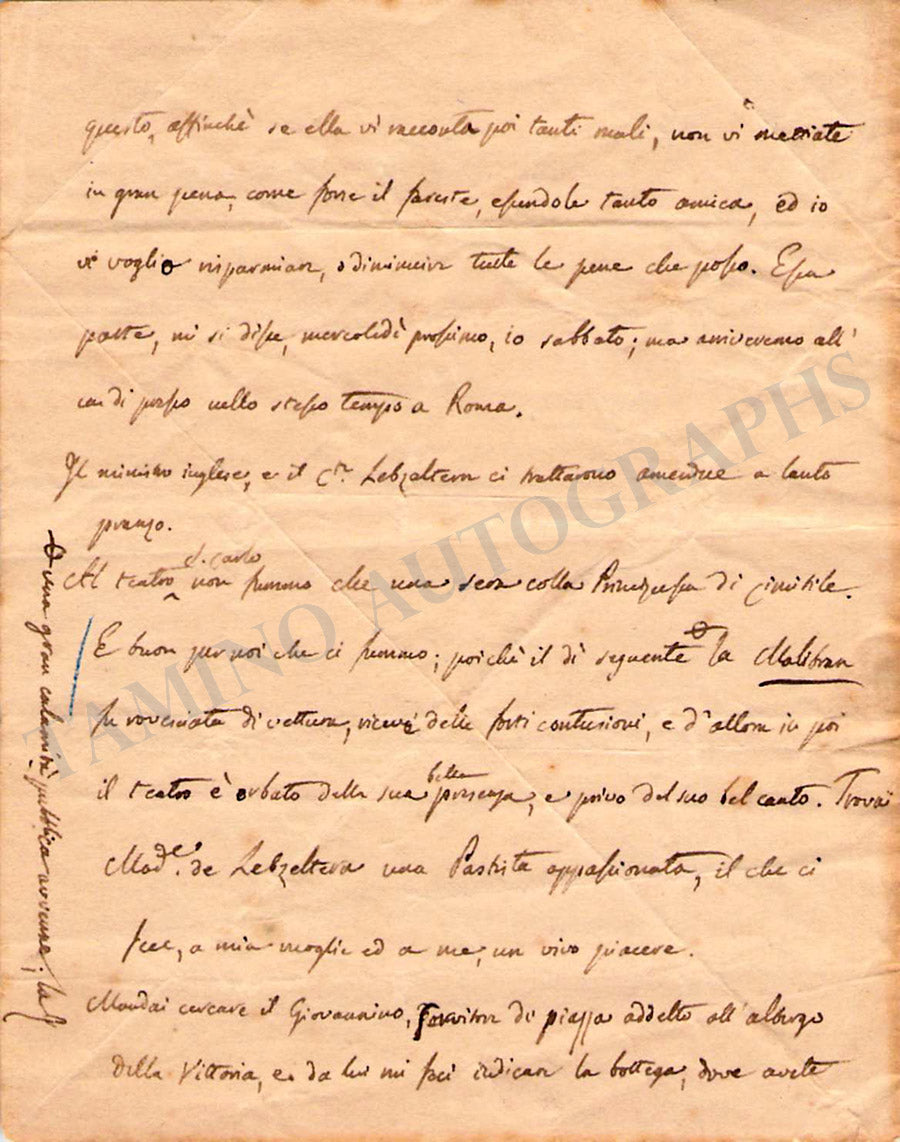 questo, affinchè se ella vi racconta poi tanti mali, non vi mettiate
in gran pena, come forse il fareste, essendole tanto amica, ed io
vi voglio risparmiar, o diminuir tutte le pene che posso. Essa
parte, mi si disse, mercoledì prossimo, io sabbato; ma arriveremo all'
in di presso nello stesso tempo a Roma.
Il ministro inglese, e il Cte. Lebzeltern ci trattarono amendue a lauto
pranzo.
Al teatro S. Carlo non fummo che una sera colla Principessa di Cimitile.
E buon per noi che ci fummo; poichè il dì seguente la Malibran
fu rovesciata di vettura, ricevè delle forti contusioni, e d'allora in poi
il teatro è orbato della sua bella presenza, e privo del suo bel canto. Trovai
Made. de Lebzeltern una Pastista appassionata, il che ci
fece, a mia moglie ed a me, un vivo piacere.
Mandai cercare il Giovannino, servitor di piazza addetto all'albergo
della Vittoria, e da lui mi feci indicar la bottega, dove avete
una gran calamità pubblica avvenne; la
TAMINO AUTOGRAPHS